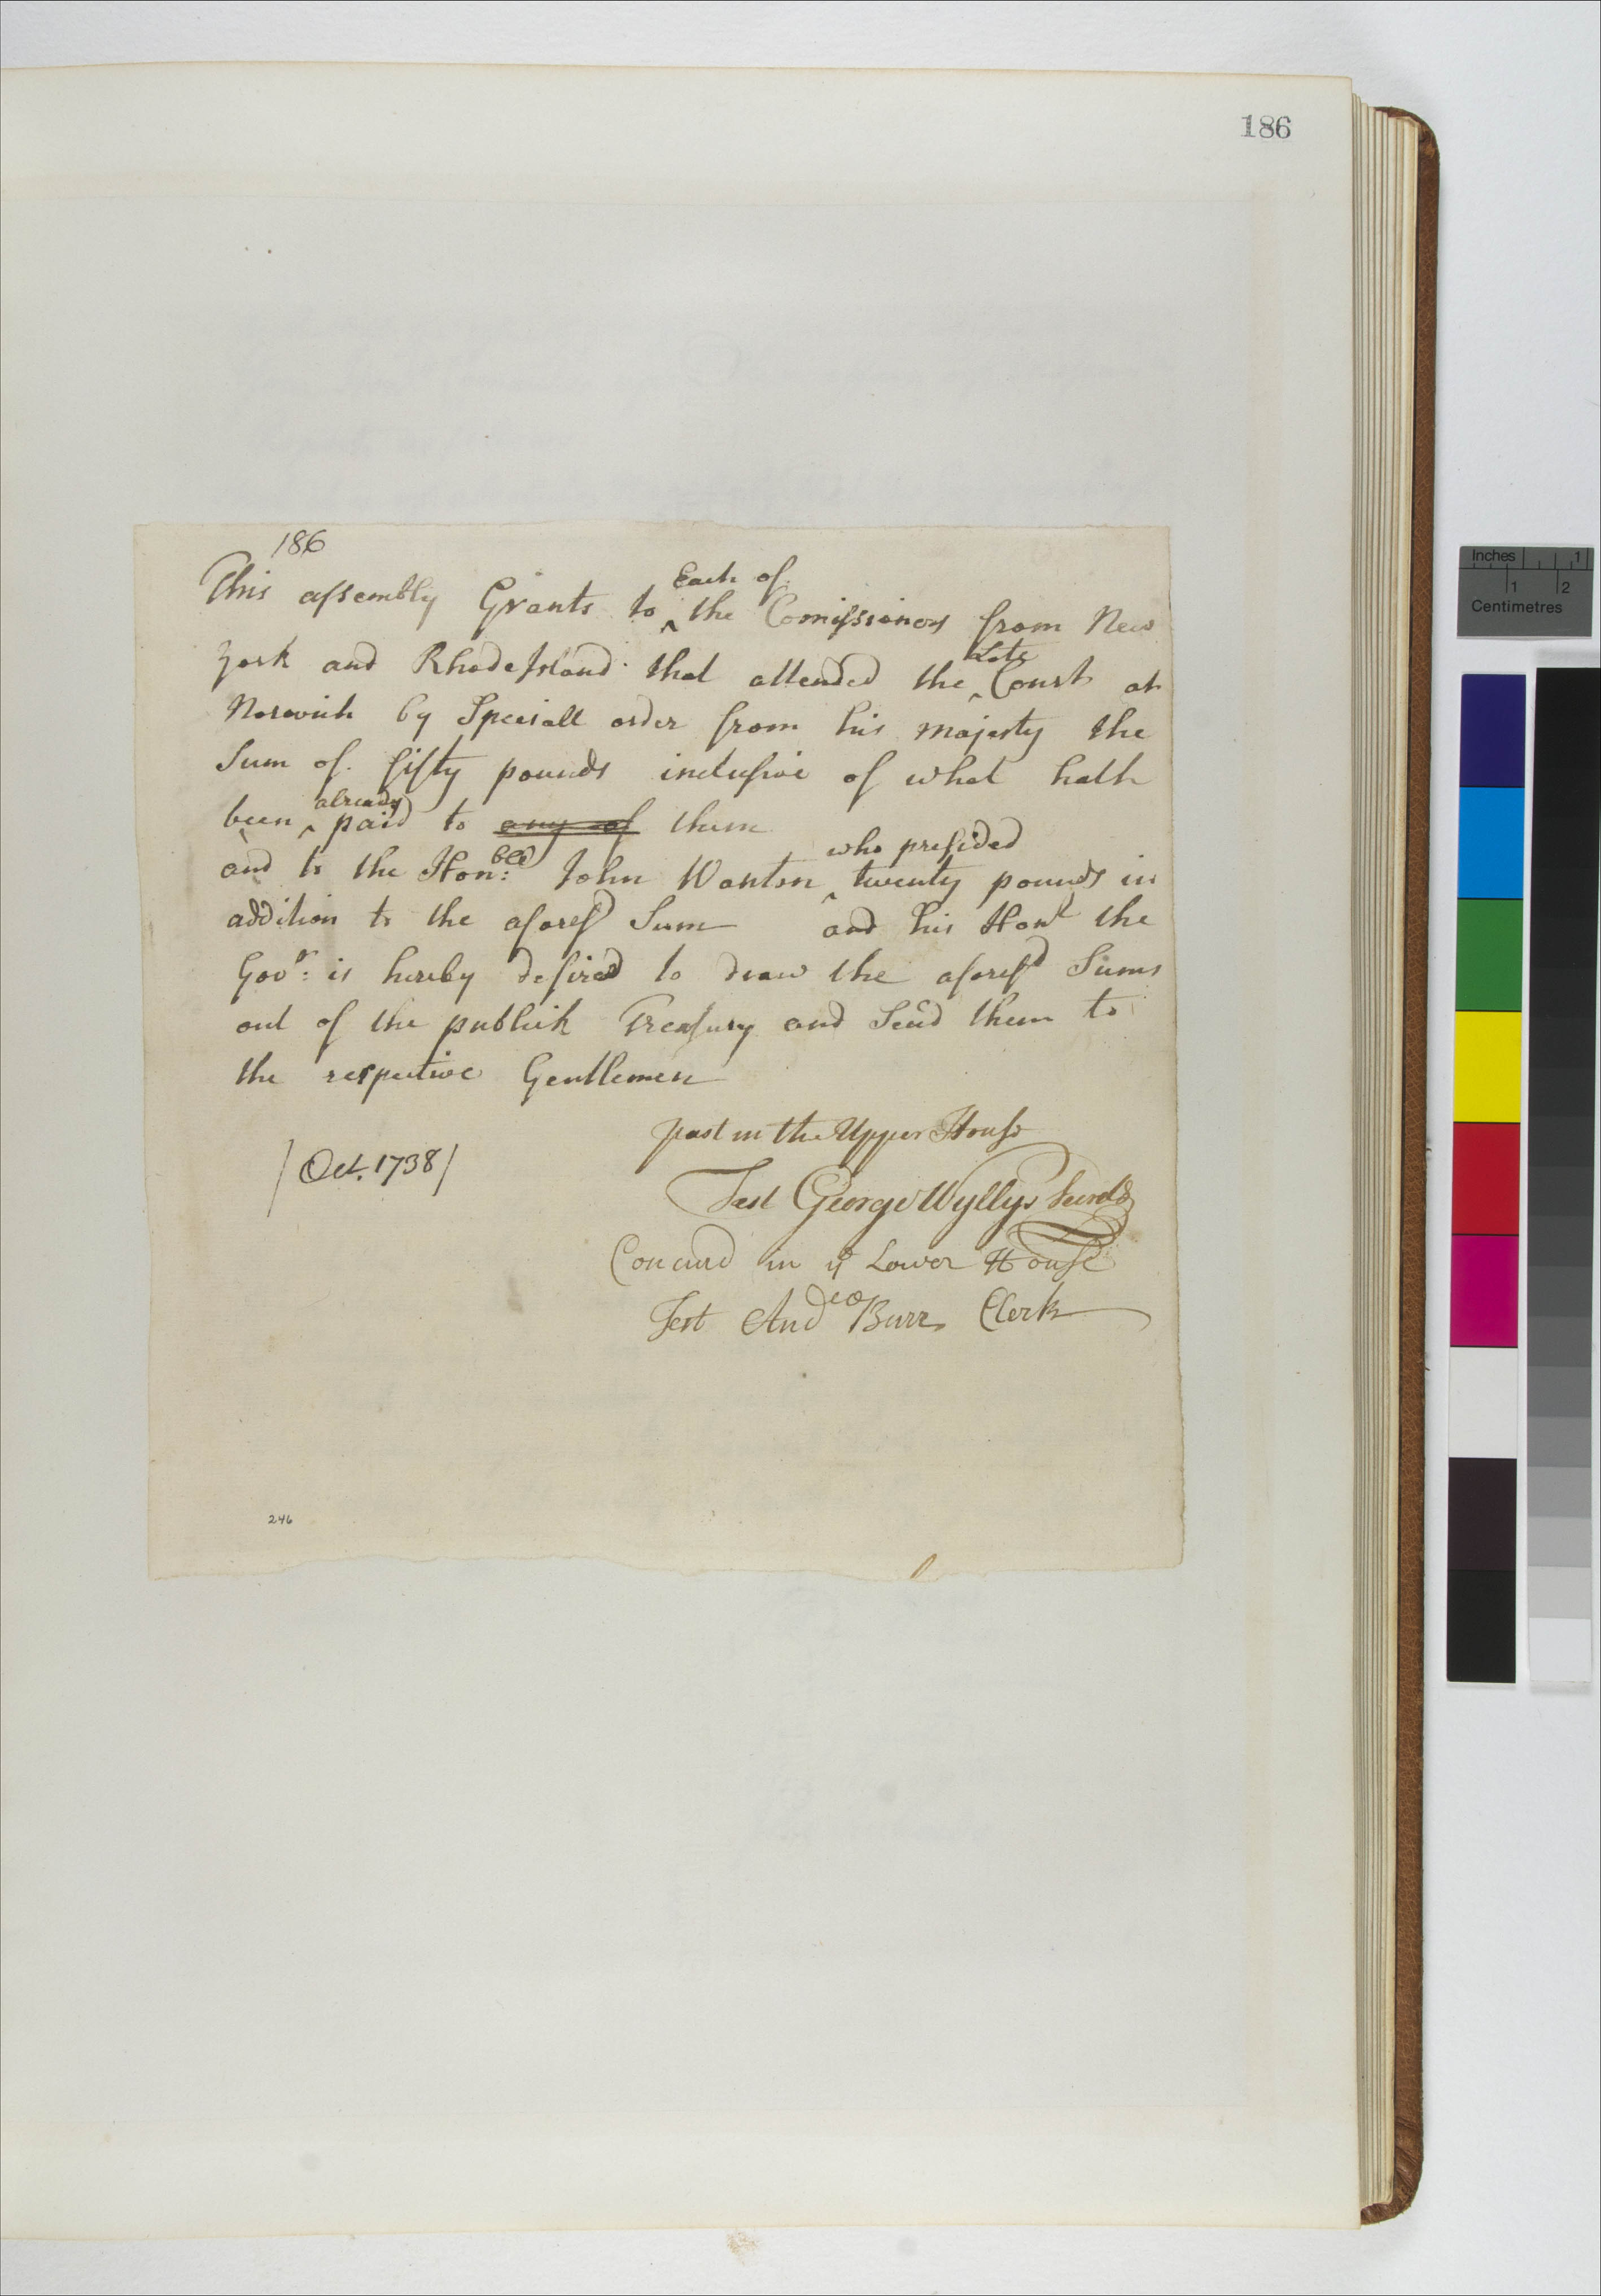 186
186
This assembly Grants to ^ Each of the Comissionors from New
york and Rhode Island that attended the ^ Late Court at
Norwich by Speciall order from his majesty the
Sum of fifty pounds inclusive of what hath
been ^ already paid to any of them
and to the Hon:ble John Wanton ^ who presided twenty pounds in
addition to the aforesd Sum and his Honr the
Govr: is hereby desired to draw the aforesd Sums
out of the publick Treasury and Send them to
the respective Gentlemen
past in the Upper House
/ Oct. 1738 /
Test George Wyllys Secretd
Concurd in ye Lower House
Test Andrew Burr Clerk
246
Inches 1
1 2
Centimetres